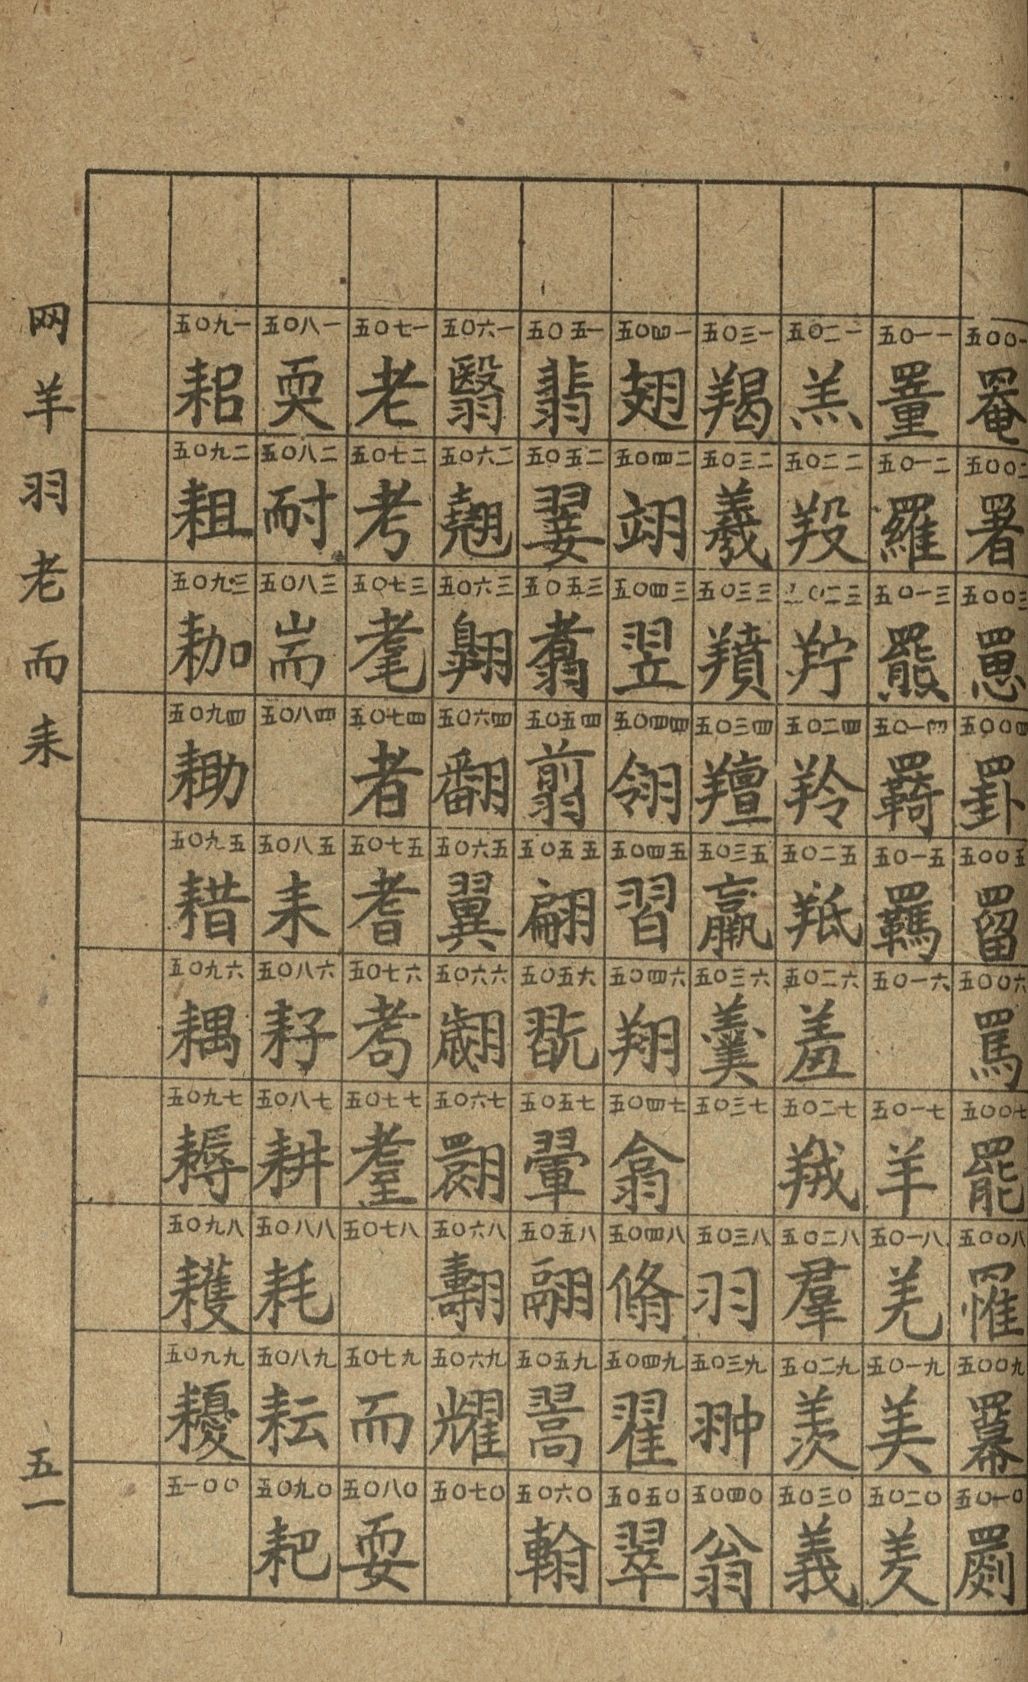 网羊羽老而耒
五一
五〇〇一 罨 五〇〇二 署 五〇〇三 罳 五〇〇四 罫 五〇〇五 罶 五〇〇六 罵 五〇〇七 罷 五〇〇八 罹 五〇〇九 羃 五〇一〇 罽
五〇一一 罿 五〇一二 羅 五〇一三 羆 五〇一四 羇 五〇一五 羈 五〇一六 五〇一七 羊 五〇一八 羌 五〇一九 美 五〇二〇 羑
五〇二一 羔 五〇二二 羖 五〇二三 羜 五〇二四 羚 五〇二五 羝 五〇二六 羞 五〇二七 羢 五〇二八 羣 五〇二九 羨 五〇三〇 義
五〇三一 羯 五〇三二 羲 五〇三三 羵 五〇三四 羶 五〇三五 羸 五〇三六 羹 五〇三七 五〇三八 羽 五〇三九 翀 五〇四〇 翁
五〇四一 翅 五〇四二 翊 五〇四三 翌 五〇四四 翎 五〇四五 習 五〇四六 翔 五〇四七 翕 五〇四八 翛 五〇四九 翟 五〇五〇 翠
五〇五一 翡 五〇五二 翣 五〇五三 翥 五〇五四 翦 五〇五五 翩 五〇五六 翫 五〇五七 翬 五〇五八 翮 五〇五九 翯 五〇六〇 翰
五〇六一 翳 五〇六二 翹 五〇六三 翱 五〇六四 翻 五〇六五 翼 五〇六六 翽 五〇六七 翾 五〇六八 翿 五〇六九 耀 五〇七〇
五〇七一 老 五〇七二 考 五〇七三 耄 五〇七四 者 五〇七五 耆 五〇七六 耇 五〇七七 耋 五〇七八 五〇七九 而 五〇八〇 耍
五〇八一 耎 五〇八二 耐 五〇八三 耑 五〇八四 五〇八五 耒 五〇八六 耔 五〇八七 耕 五〇八八 耗 五〇八九 耘 五〇九〇 耙
五〇九一 耜 五〇九二 耝 五〇九三 耞 五〇九四 耡 五〇九五 耤 五〇九六 耦 五〇九七 耨 五〇九八 五〇九九 耰 五一〇〇